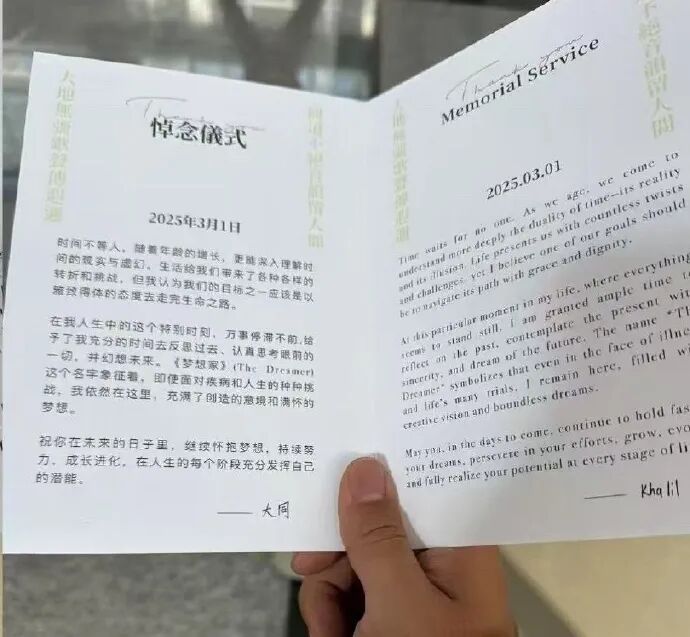 大地無疆歌聲傳遐邇
Thank you
悼念儀式
不絕音韻留人間
2025年3月1日
时间不等人，随着年龄的增长，更能深入理解时
间的现实与虚幻。生活给我们带来了各种各样的
转折和挑战，但我认为我们的目标之一应该是以
雅致得体的态度去走完生命之路。
在我人生中的这个特别时刻，万事停滞不前,给
予了我充分的时间去反思过去、认真思考眼前的
一切，并幻想未来。《梦想家》(The Dreamer)
这个名字象征着，即便面对疾病和人生的种种挑
战，我依然在这里，充满了创造的意境和满怀的
梦想。
祝你在未来的日子里，继续怀抱梦想，持续努
力、成长进化，在人生的每个阶段充分发挥自己
的潜能。
—— 大同
大地無疆歌聲傳遐邇
Thank you
Memorial Service
不絕音韻留人間
2025.03.01
Time waits for no one. As we age, we come to
understand more deeply the duality of time—its reality
and its illusion. Life presents us with countless twists
and challenges, yet I believe one of our goals should
be to navigate its path with grace and dignity.
At this particular moment in my life, where everything
seems to stand still, I am granted ample time to
reflect on the past, contemplate the present with
sincerity, and dream of the future. The name "The
Dreamer" symbolizes that even in the face of illne
and life's many trials, I remain here, filled with
creative vision and boundless dreams.
May you, in the days to come, continue to hold fast
your dreams, persevere in your efforts, grow, evo
and fully realize your potential at every stage of li
—— Khalil